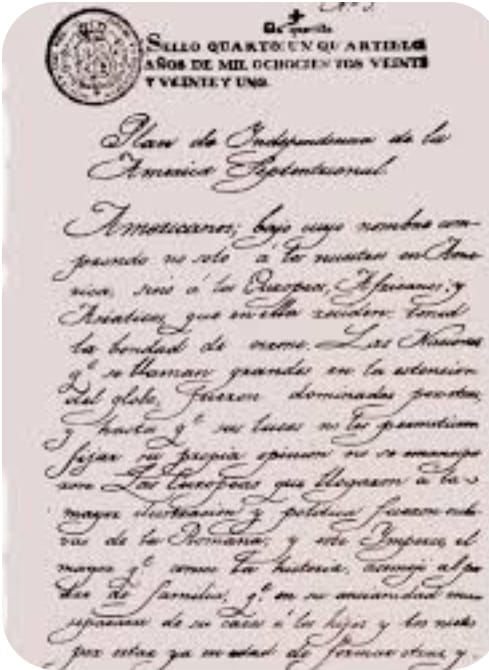 Nº 3.
Un quartillo
SELLO QUARTO: UN QUARTILLO
AÑOS DE MIL OCHOCIENTOS VEINTE
Y VEINTE Y UNO.
Plan de Independencia de la
America Septentrional.
Americanos, bajo cuyo nombre com-
prendo no solo á los nacidos en Ame-
rica, sino á los Europeos, Africanos, y
Asiaticos que en ella reciden: tened
la bondad de oirme. Las Naciones
qº se llaman grandes en la estension
del globo, fueron dominadas por otras,
y hasta qº sus luces no les permitieron
fijar su propia opinion no se emancipa-
ron. Las Europeas que llegaron á la
mayor ilustracion y politica fueron escla-
vas de la Romana; y este Imperio, el
mayor qº conoce la historia, asemejó al pa-
dre de familia, qº en su ancianidad mira
separarse de su casa á los hijos y los nietos
por estar ya en edad de formar otras, y